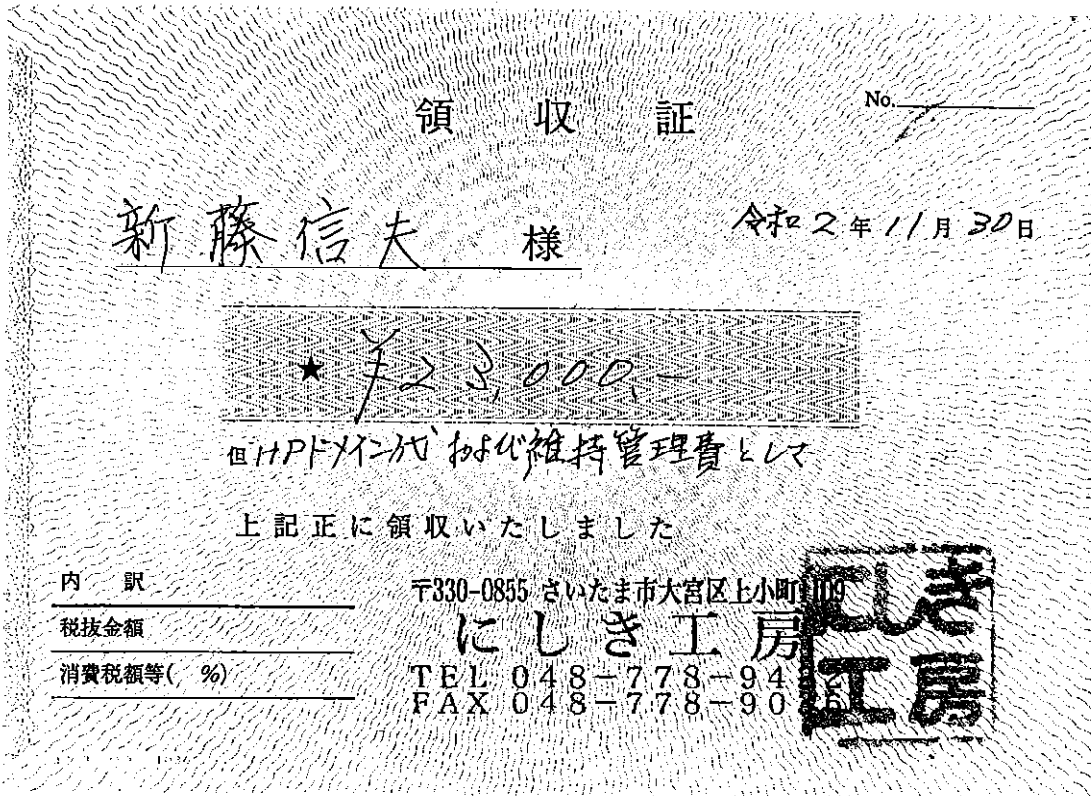 領収証
No.
新藤信夫 様
令和2年11月30日
★ ¥23,000,-
但HPドメイン代および維持管理費として
上記正に領収いたしました
内訳
税抜金額
消費税額等( %)
〒330-0855 さいたま市大宮区上小町1109
にしき工房
TEL 048-778-94
FAX 048-778-90
にしき
工房